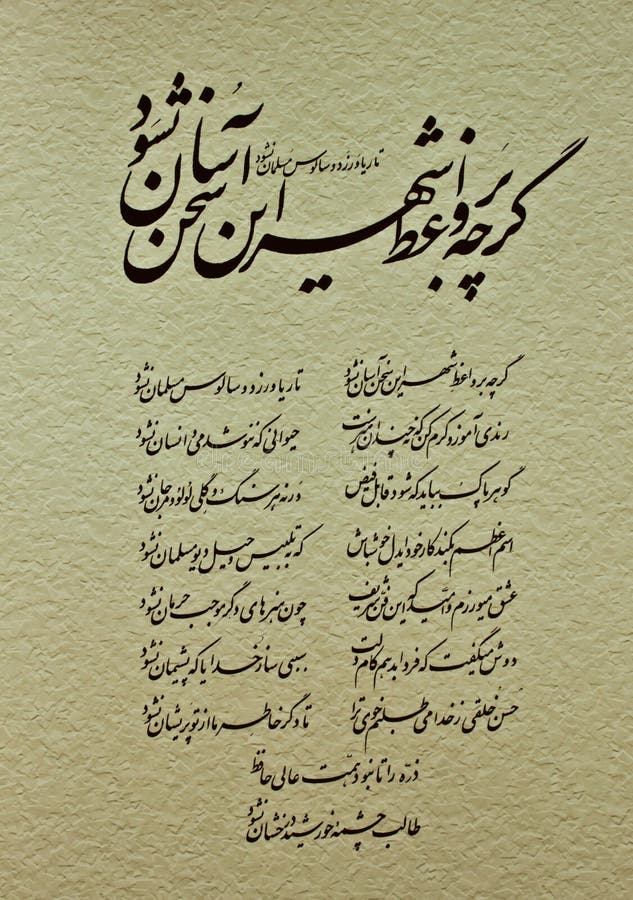 گرچه بر واعظ شهر این سخن آسان نشود
تا ریا ورزد و سالوس مسلمان نشود
گرچه بر واعظ شهر این سخن آسان نشود تا ریا ورزد و سالوس مسلمان نشود
رندی آموز و کرم کن که نه چندان هنرست حیوانی که ننوشد می و انسان نشود
گوهر پاک بباید که شود قابل فیض ورنه هر سنگ و گلی لولو و مرجان نشود
اسم اعظم بکند کار خود ایدل خوشباش که به تلبیس و حیل دیو مسلمان نشود
عشق میورزم و امید که این فن شریف چون هنرهای دگر موجب حرمان نشود
دوش میگفت که فردا بدهم کام دلت سببی ساز خدایا که پشیمان نشود
حسن خلقی ز خدا می طلبم خوی ترا تا دگر خاطر ما از تو پریشان نشود
ذره را تا نبود همت عالی حافظ
طالب چشمه خورشید درخشان نشود